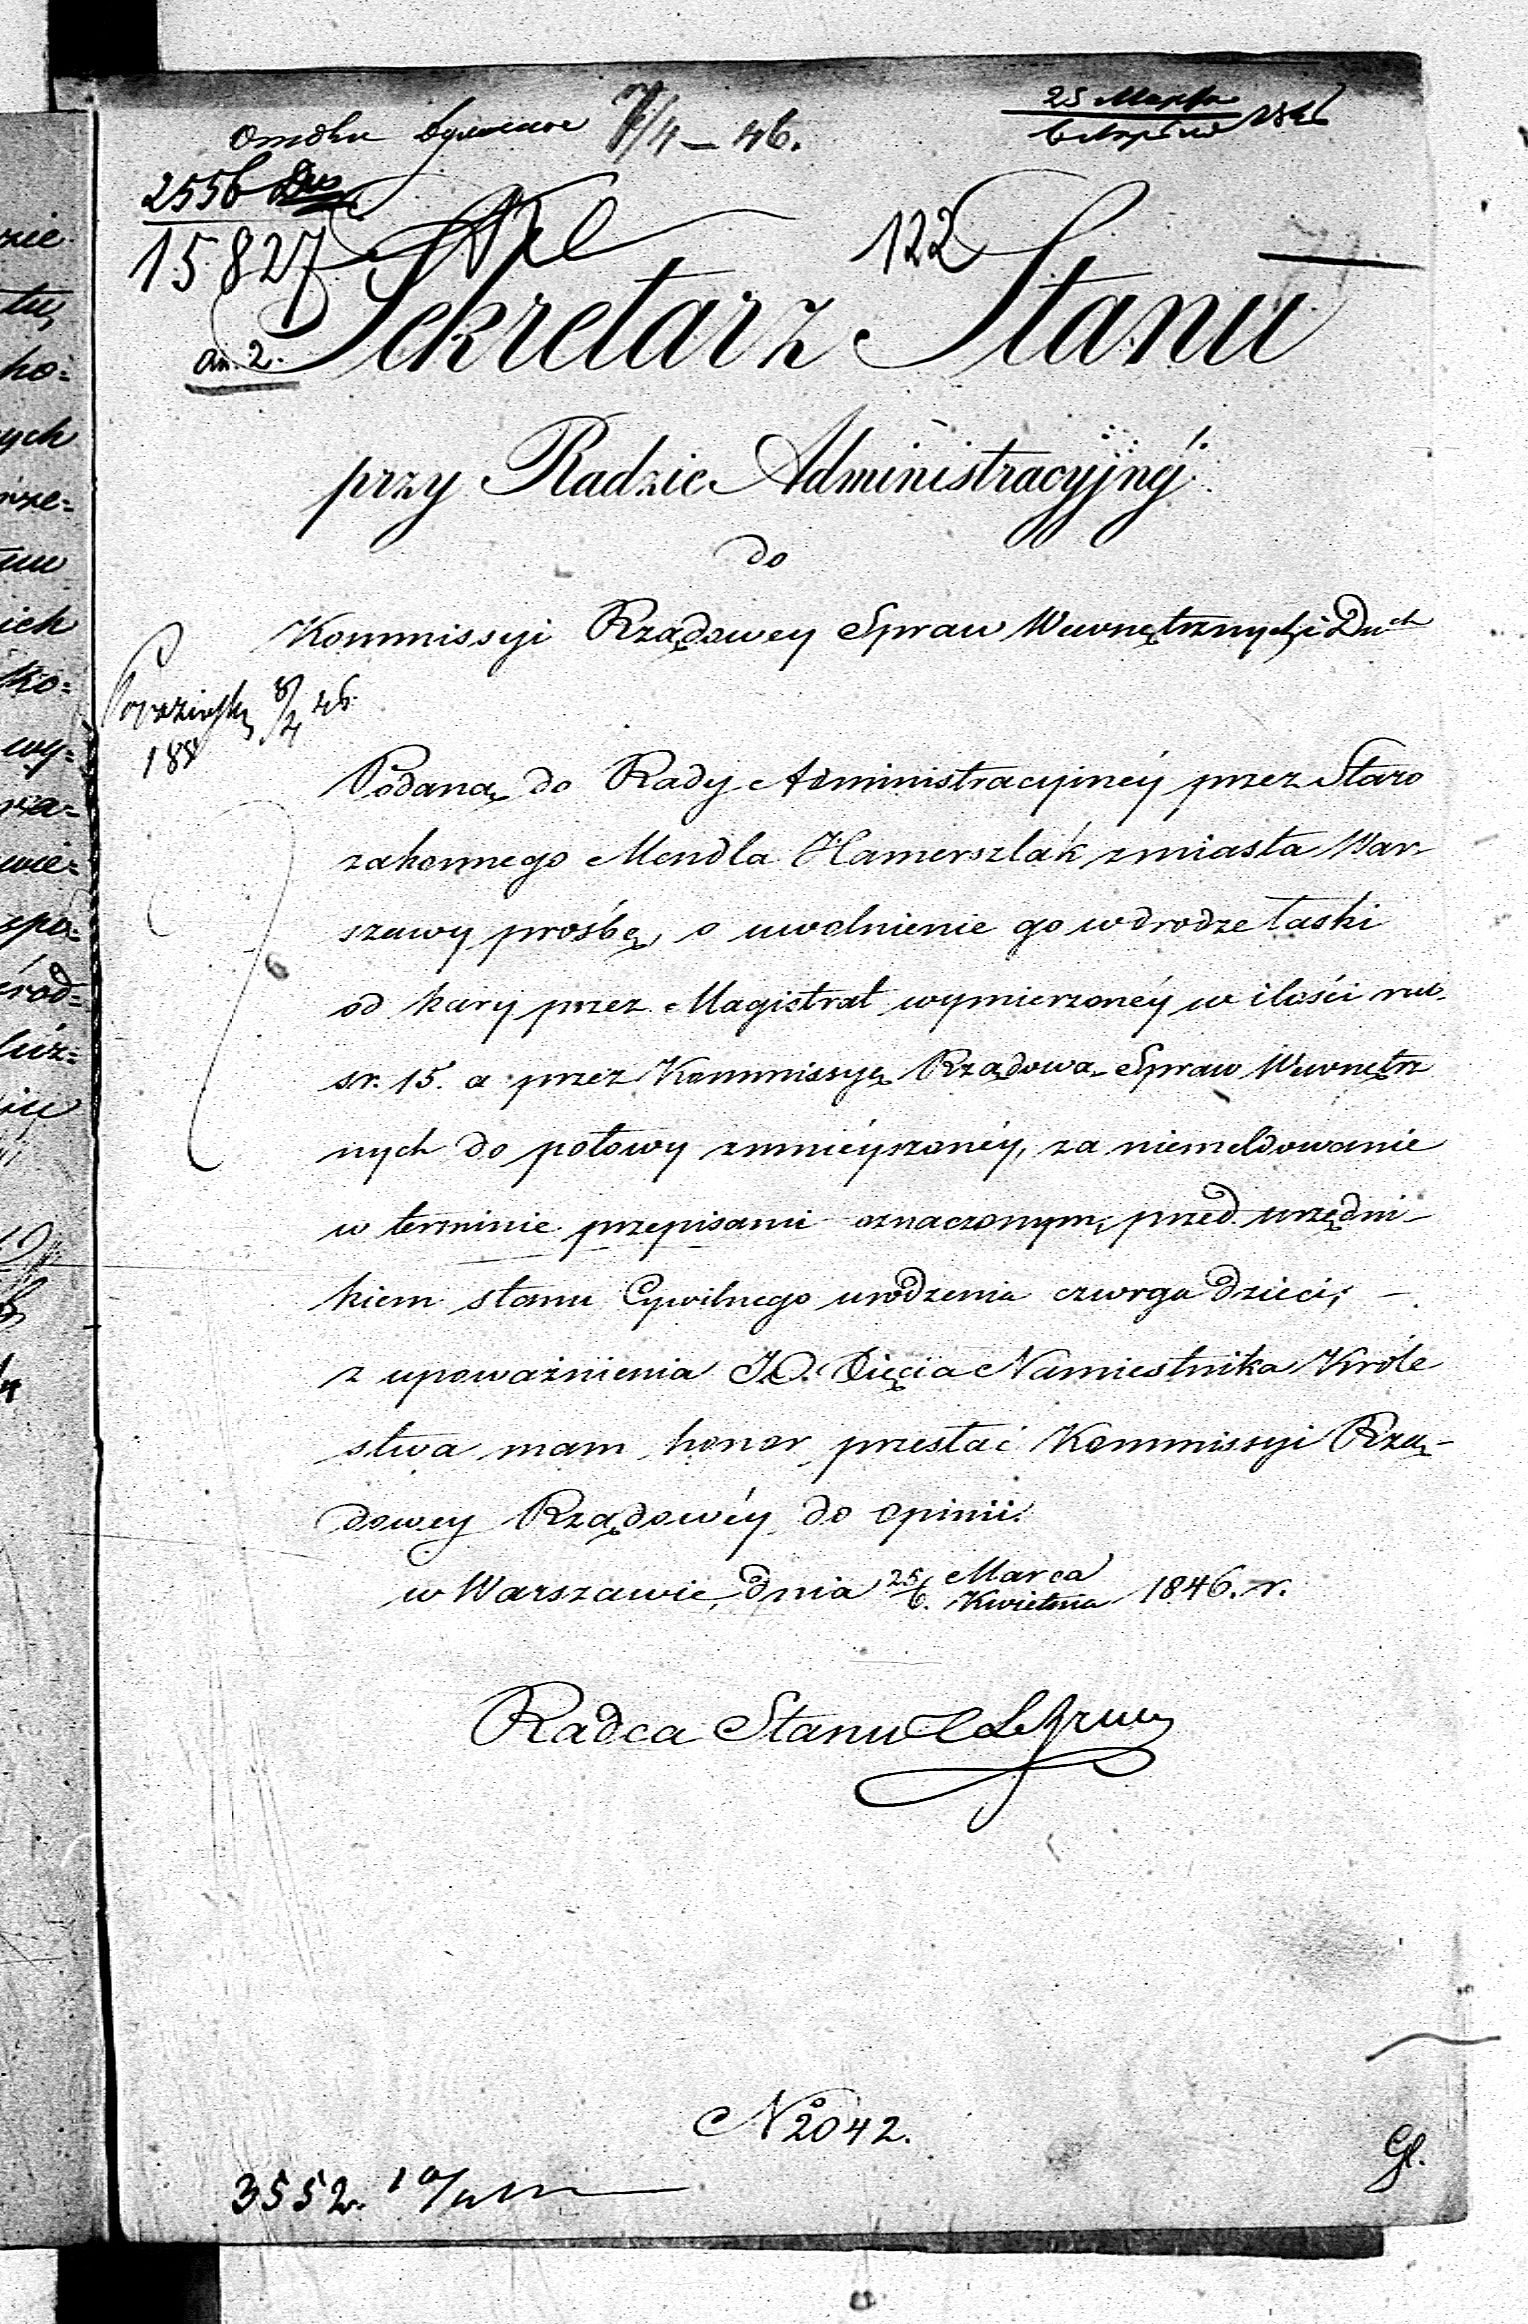 7/4 – 46.
25 Марта 1846
2556
15827
122
an. 2.
Sekretarz Stanu
przy Radzie Administracyjnéj
do
Kommissyi Rządowey Spraw Wewnętrznych i Duch
8/4 46
188
Podaną do Rady Administracyjnéy przez Staro
zakonnego Mendla Hamerszlak z miasta War-
szawy prośbę, o uwolnienie go w drodze łaski
od kary przez Magistrat wymierzonéy w ilości rub.
sr. 15. a przez Kommissyę Rządową Spraw Wewnętrz
nych do połowy zmnieyszonéy, za niemeldowanie
w terminie przepisami oznaczonym, przed urzędni-
kiem stanu Cywilnego urodzenia czworga dzieci, –
z upoważnienia J.O. Xięcia Namiestnika Króle
stwa mam honor przesłać Kommissyi Rzą-
dowey Rządowéy do opinii.
w Warszawie, dnia 25/6. Marca/Kwietnia 1846. r.
Radca Stanu
№ 2042.
Gl.
3552.